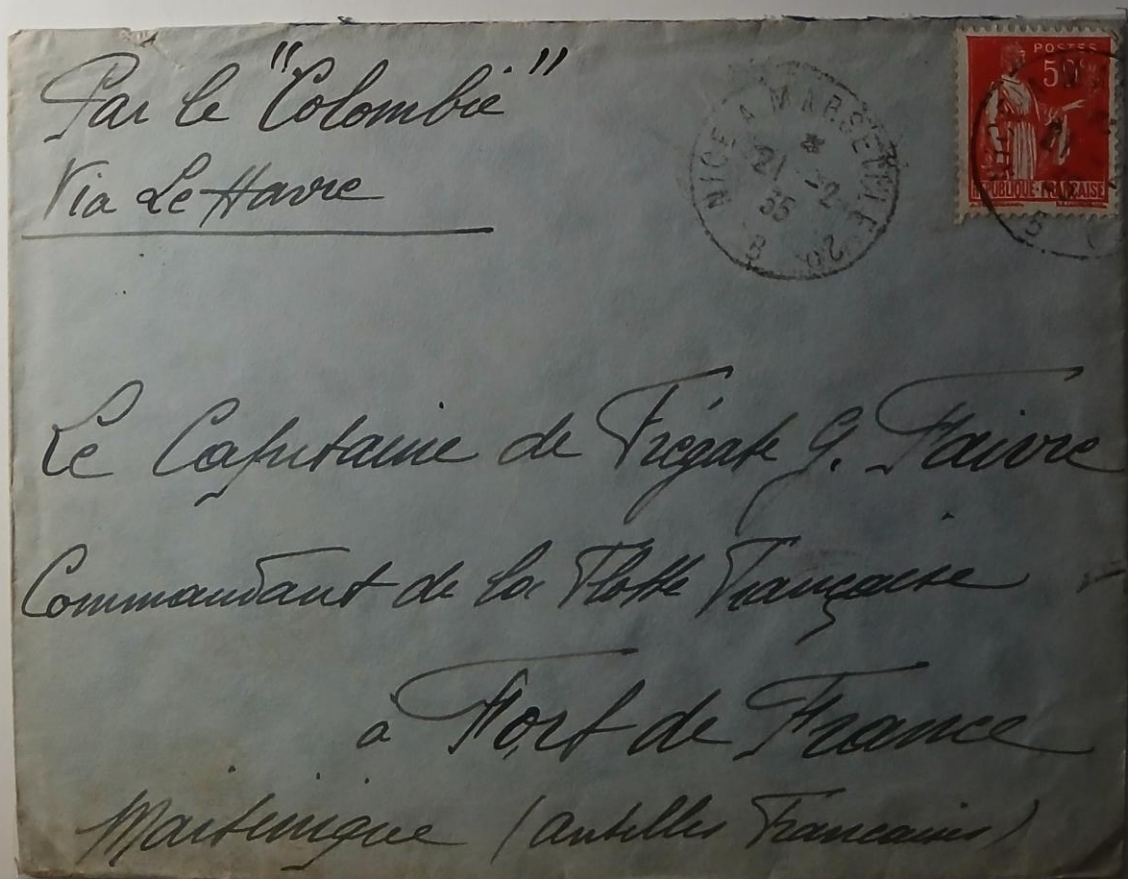 Par le "Colombie"
Via Le Havre
NICE A MARSEILLE
21 - 2
35
POSTES
50c
REPUBLIQUE FRANÇAISE
Le Capitaine de Frégate G. Faivre
Commandant de la Flotte Française
à Fort de France
Martinique (Antilles Françaises)